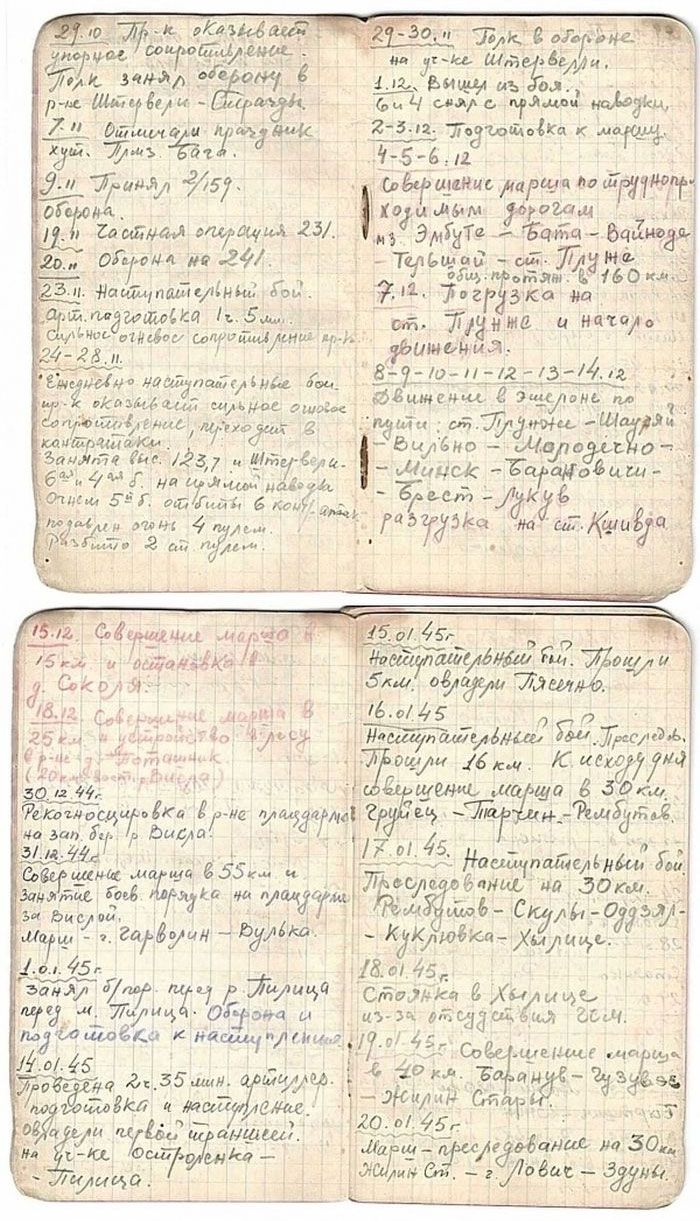 29.10 Пр-к оказывает
упорное сопротивление.
Полк занял оборону в
р-не Штервели - Стразды
7.11 Отмечали праздник
хут. Плмз. Бага.
9.11 Принял 2/159.
оборона.
19.11 Частная операция 231.
20.11 Оборона на 241.
23.11. Наступательный бой.
арт. подготовка 1ч. 5 мин.
Сильное огневое сопротивление пр-к
24-28.11.
Ежедневно наступательные бои.
пр-к оказывает сильное огневое
сопротивление, переходит в
контратаки.
Занята выс. 123,7 и Штервели.
6ая и 4ая б. на прямой наводке
Огнем 5й б. отбиты 6 контратак
подавлен огонь 4 пулем.
Разбито 2 ст. пулем.
29-30.11 Полк в обороне
на уч-ке Штервели.
1.12. Вышел из боя.
6 и 4 снял с прямой наводки.
2-3.12. Подготовка к маршу.
4-5-6.12
Совершение марша по труднопр-
ходимым дорогам
мз. Эмбуте - Бата - Вайноде
- Тельшай - ст. Плунже
общ. протяж. в 160 км.
7.12. Погрузка на
ст. Плунже и начало
движения.
8-9-10-11-12-13-14.12
Движение в эшелоне по
пути: ст. Плунже - Шауляй
- Вильно - Молодечно -
- Минск - Барановичи -
- Брест - Лукув
разгрузка на ст. Кшивда
15.12. Совершение марша в
15 км и остановка в
д. Соколя.
18.12. Совершение марша в
25 км и устройство в лесу
в р-не д. Поташник
(20 км вост. р. Висла)
30.12.44г.
Рекогносцировка в р-не плацдарма
на зап. бер. р. Висла.
31.12.44г.
Совершение марша в 55 км и
занятие боев. порядка на плацдарме
за Вислой.
Марш - г. Гарволин - Вулька.
1.01.45г.
Занял б/пор. перед р. Пилица
перед м. Пилица. Оборона и
подготовка к наступлению
14.01.45
Проведена 2ч. 35 мин. артиллер.
подготовка и наступление.
Овладели первой траншеей.
на уч-ке Остроленка -
- Пилица.
15.01.45г
Наступательный бой. Прошли
5 км. овладели Пясечно.
16.01.45
Наступательный бой. Преследов.
Прошли 16 км. К исходу дня
совершение марша в 30 км.
Груйец - Тарчин - Рембутов.
17.01.45. Наступательный бой.
Преследование на 30 км.
Рембутов - Скулы - Оддзял -
- Куклювка - Хылице.
18.01.45г.
Стоянка в Хылице
из-за отсудствия ГСМ.
19.01.45г. Совершение марша
в 40 км. Баранув - Гузув
- Жилин Стары.
20.01.45г.
Марш - преследование на 30 км
Жилин Ст. - г. Лович - Здуны.